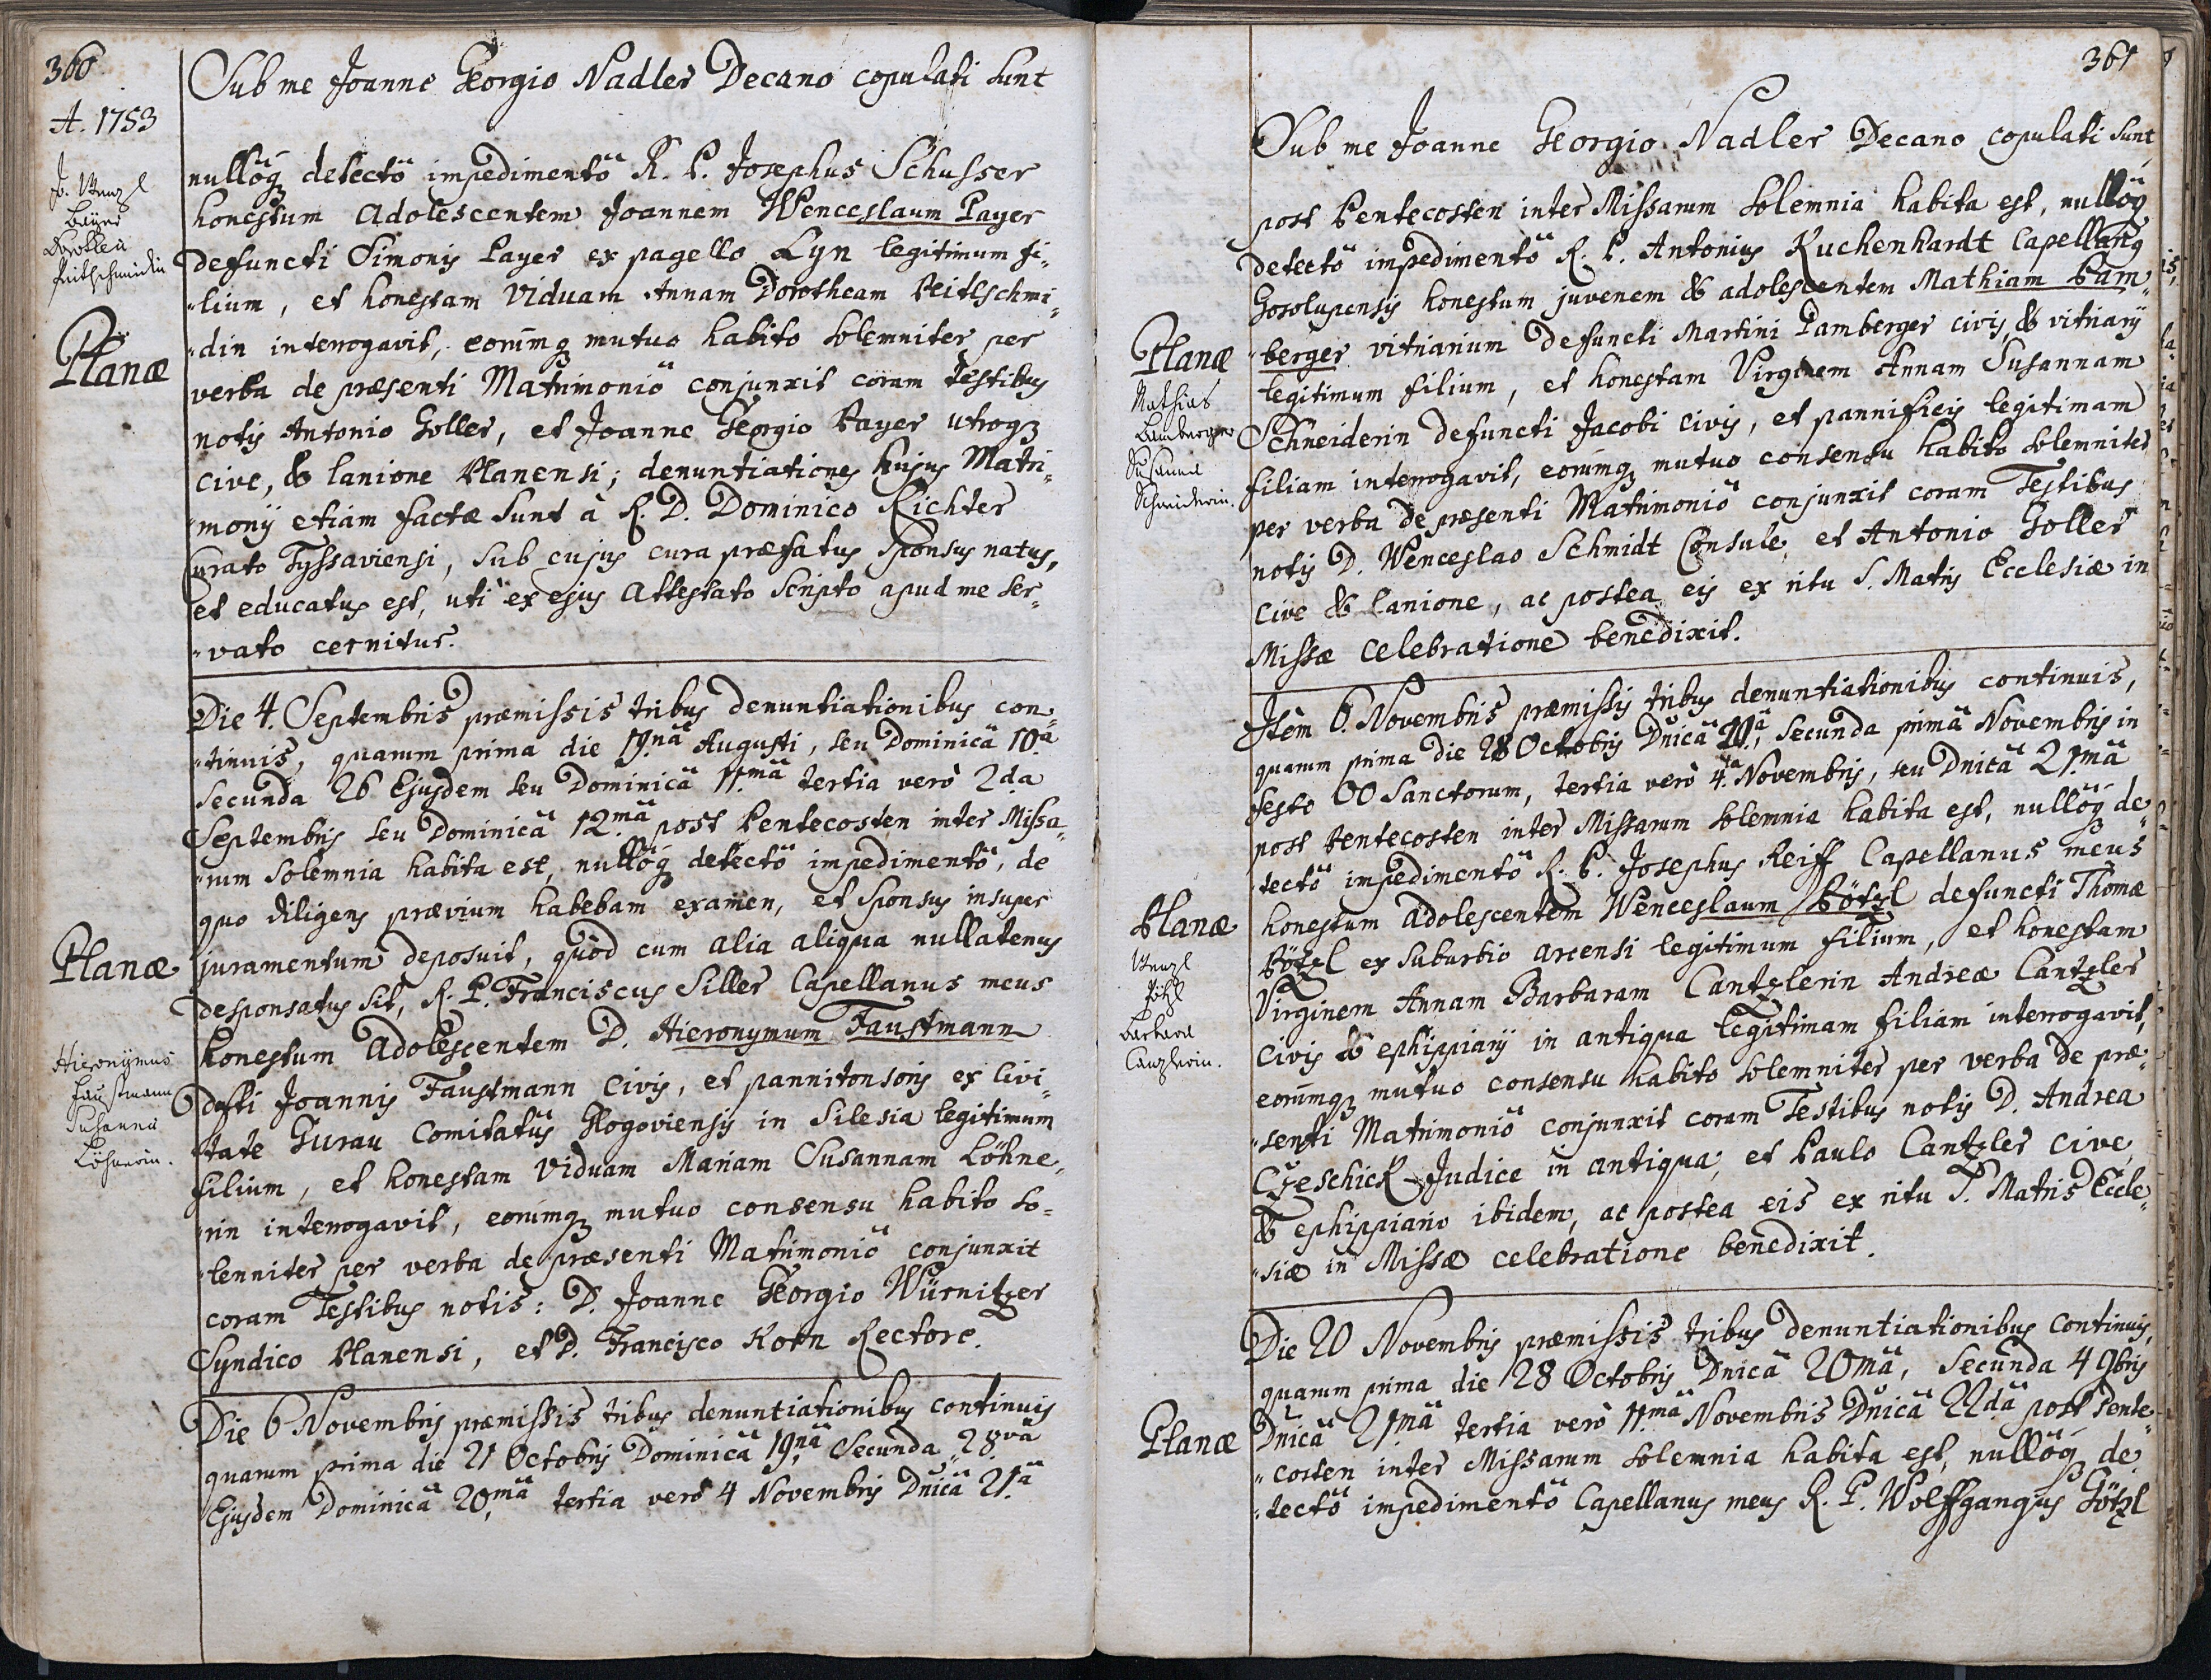 360
A. 1753
Sub me Joanne Georgio Nadler Decano copulati sunt
J. Wenzl
Bayer
Dorothea
Peitlschmidin
Planæ
nullög detectö impedimentö R. P. Josephus Schusser
honestum adolescentem Joannem Wenceslaum Payer
defuncti Simonis Payer ex pagello Lyn legitimum fi-
-lium, et honestam Viduam Annam Dorotheam Peitlschmi-
-din interrogavit, eorumq mutuo habito solemniter per
verba de præsenti Matrimoniö conjunxit coram testibus
notis Antonio Goller, et Joanne Georgio Payer utroq
cive, & lanione Planensi; denuntiationes hujus Matri-
-monij etiam factæ sunt à R. D. Dominico Richter
Curato Tyssaviensi, sub cujus cura præfatus sponsus natus,
et educatus est, uti ex ejus attestato scripto apud me ser-
-vato cernitur.
Planæ
Hieronymus
Faustmann
Susanna
Löhnerin.
Die 4. Septembris præmissis tribus denuntiationibus con-
-tinuis, quarum prima die 19.nä Augusti, seu Dominicä 10.ä
secunda 26 Ejusdem seu Dominicä 11.mä tertia verò 2da
Septembris seu Dominicä 12.mä post Pentecosten inter Missa-
-rum solemnia habita est, nullög detectö impedimentö, de
quo diligens prævium habebam examen, et sponsus insuper
juramentum deposuit, quòd cum alia aliqua nullatenus
desponsatus sit, R. P. Franciscus Siller Capellanus meus
honestum adolescentem D. Hieronymum Faustmann
defti Joannis Faustmann civis, et pannitonsoris ex Civi-
tate Gurau Comitatüs Glogoviensis in Silesia legitimum
filium, et honestam viduam Mariam Susannam Löhne-
-rin interrogavit, eorumq mutuo consensu habito so-
-lenniter per verba de præsenti Matrimoniö conjunxit
coram Testibus notis: D. Joanne Georgio Würnitzer
Syndico Planensi, et D. Francisco Korn Rectore.
Die 6 Novembris præmissis tribus denuntiationibus continuis
quarum prima die 21 Octobris Dominicä 19.nä, secunda 28.vä
Ejusdem Dominicä 20.mä, tertia verò 4 Novembris Dnicä 21.ä
361
Sub me Joanne Georgio Nadler Decano copulati sunt
Planæ
Mathias
Bamberger
Susanna
Schneiderin.
post Pentecosten inter Missarum solemnia habita est, nullög
detectö impedimentö R. P. Antonius Kuchenhardt Capellang
Gosolupensis honestum juvenem & adolescentem Mathiam Pam-
-berger vitriarium defuncti Martini Pamberger civis & vitriarij
legitimum filium, et honestam Virginem Annam Susannam
Schneiderin defuncti Jacobi civis, et pannificis legitimam
filiam interrogavit, eorumq mutuo consensu habito solemniter
per verba de præsenti Matrimoniö conjunxit coram Testibus
notis D. Wenceslao Schmidt Consule, et Antonio Goller
cive & lanione, ac postea eis ex ritu S. Matris Ecclesiæ in
Missæ celebratione benedixit.
Planæ
Wenzl
Pötzl
Barbara
Canzlerin.
Item 6. Novembris præmissis tribus denuntiationibus continuis,
quarum prima die 28 Octobris Dnicä 20.ä, secunda primä Novembris in
festo OO Sanctorum, tertia verò 4.ta Novembris, seu Dnicä 21.mä
post Pentecosten inter Missarum solemnia habita est, nullög de-
tectö impedimentö R. P. Josephus Reiff Capellanus meus
honestum adolescentem Wenceslaum Pötzl defuncti Thomæ
Pötzl ex suburbio arcensi legitimum filium, et honestam
Virginem Annam Barbaram Cantzlerin Andreæ Cantzler
civis & ephippiarij in antiqua legitimam filiam interrogavit,
eorumq mutuo consensu habito solemniter per verba de præ-
-senti Matrimoniö conjunxit coram Testibus notis D. Andrea
Czeschick Judice in antiqua; et Paulo Cantzler cive,
& ephippiario ibidem, ac postea eis ex ritu S. Matris Eccle-
-siæ in Missæ celebratione benedixit.
Planæ
Die 20 Novembris præmissis tribus denuntiationibus continuis,
quarum prima die 28 Octobris Dnicä 20mä, secunda 4 9bris
Dnicä 21mä tertia verò 11.mä Novembris Dnicä 22.dä post Pente-
-costen inter Missarum solemnia habita est, nullög de-
-tectö impedimentö Capellanus meus R. P. Wolffgangus Götzl